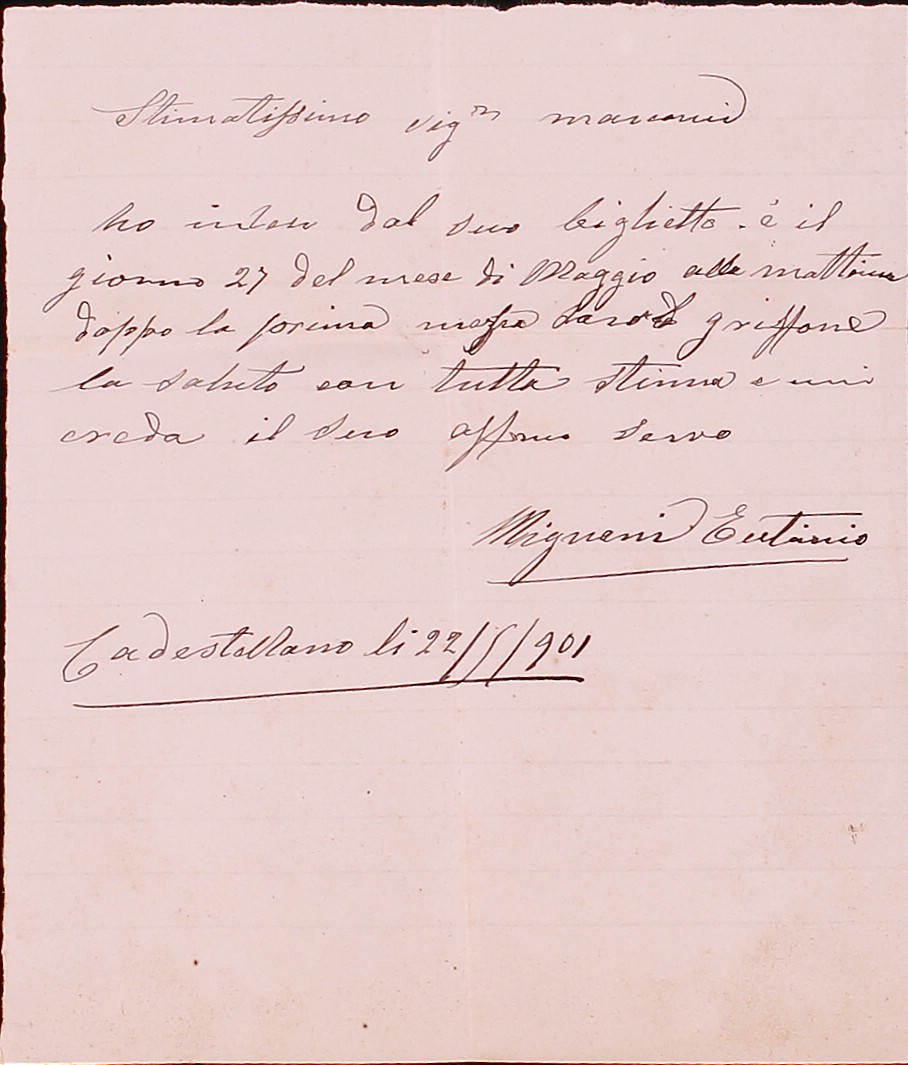 Stimatissimo sigr marconi
ho inteso dal suo biglietto. è il
giorno 27 del mese di Maggio alla mattina
doppo la prima messa sarò a griffone
la saluto con tutta stima e mi
creda il suo affmo servo
Mignani Eutimio
Cadestellano li 22/5/901